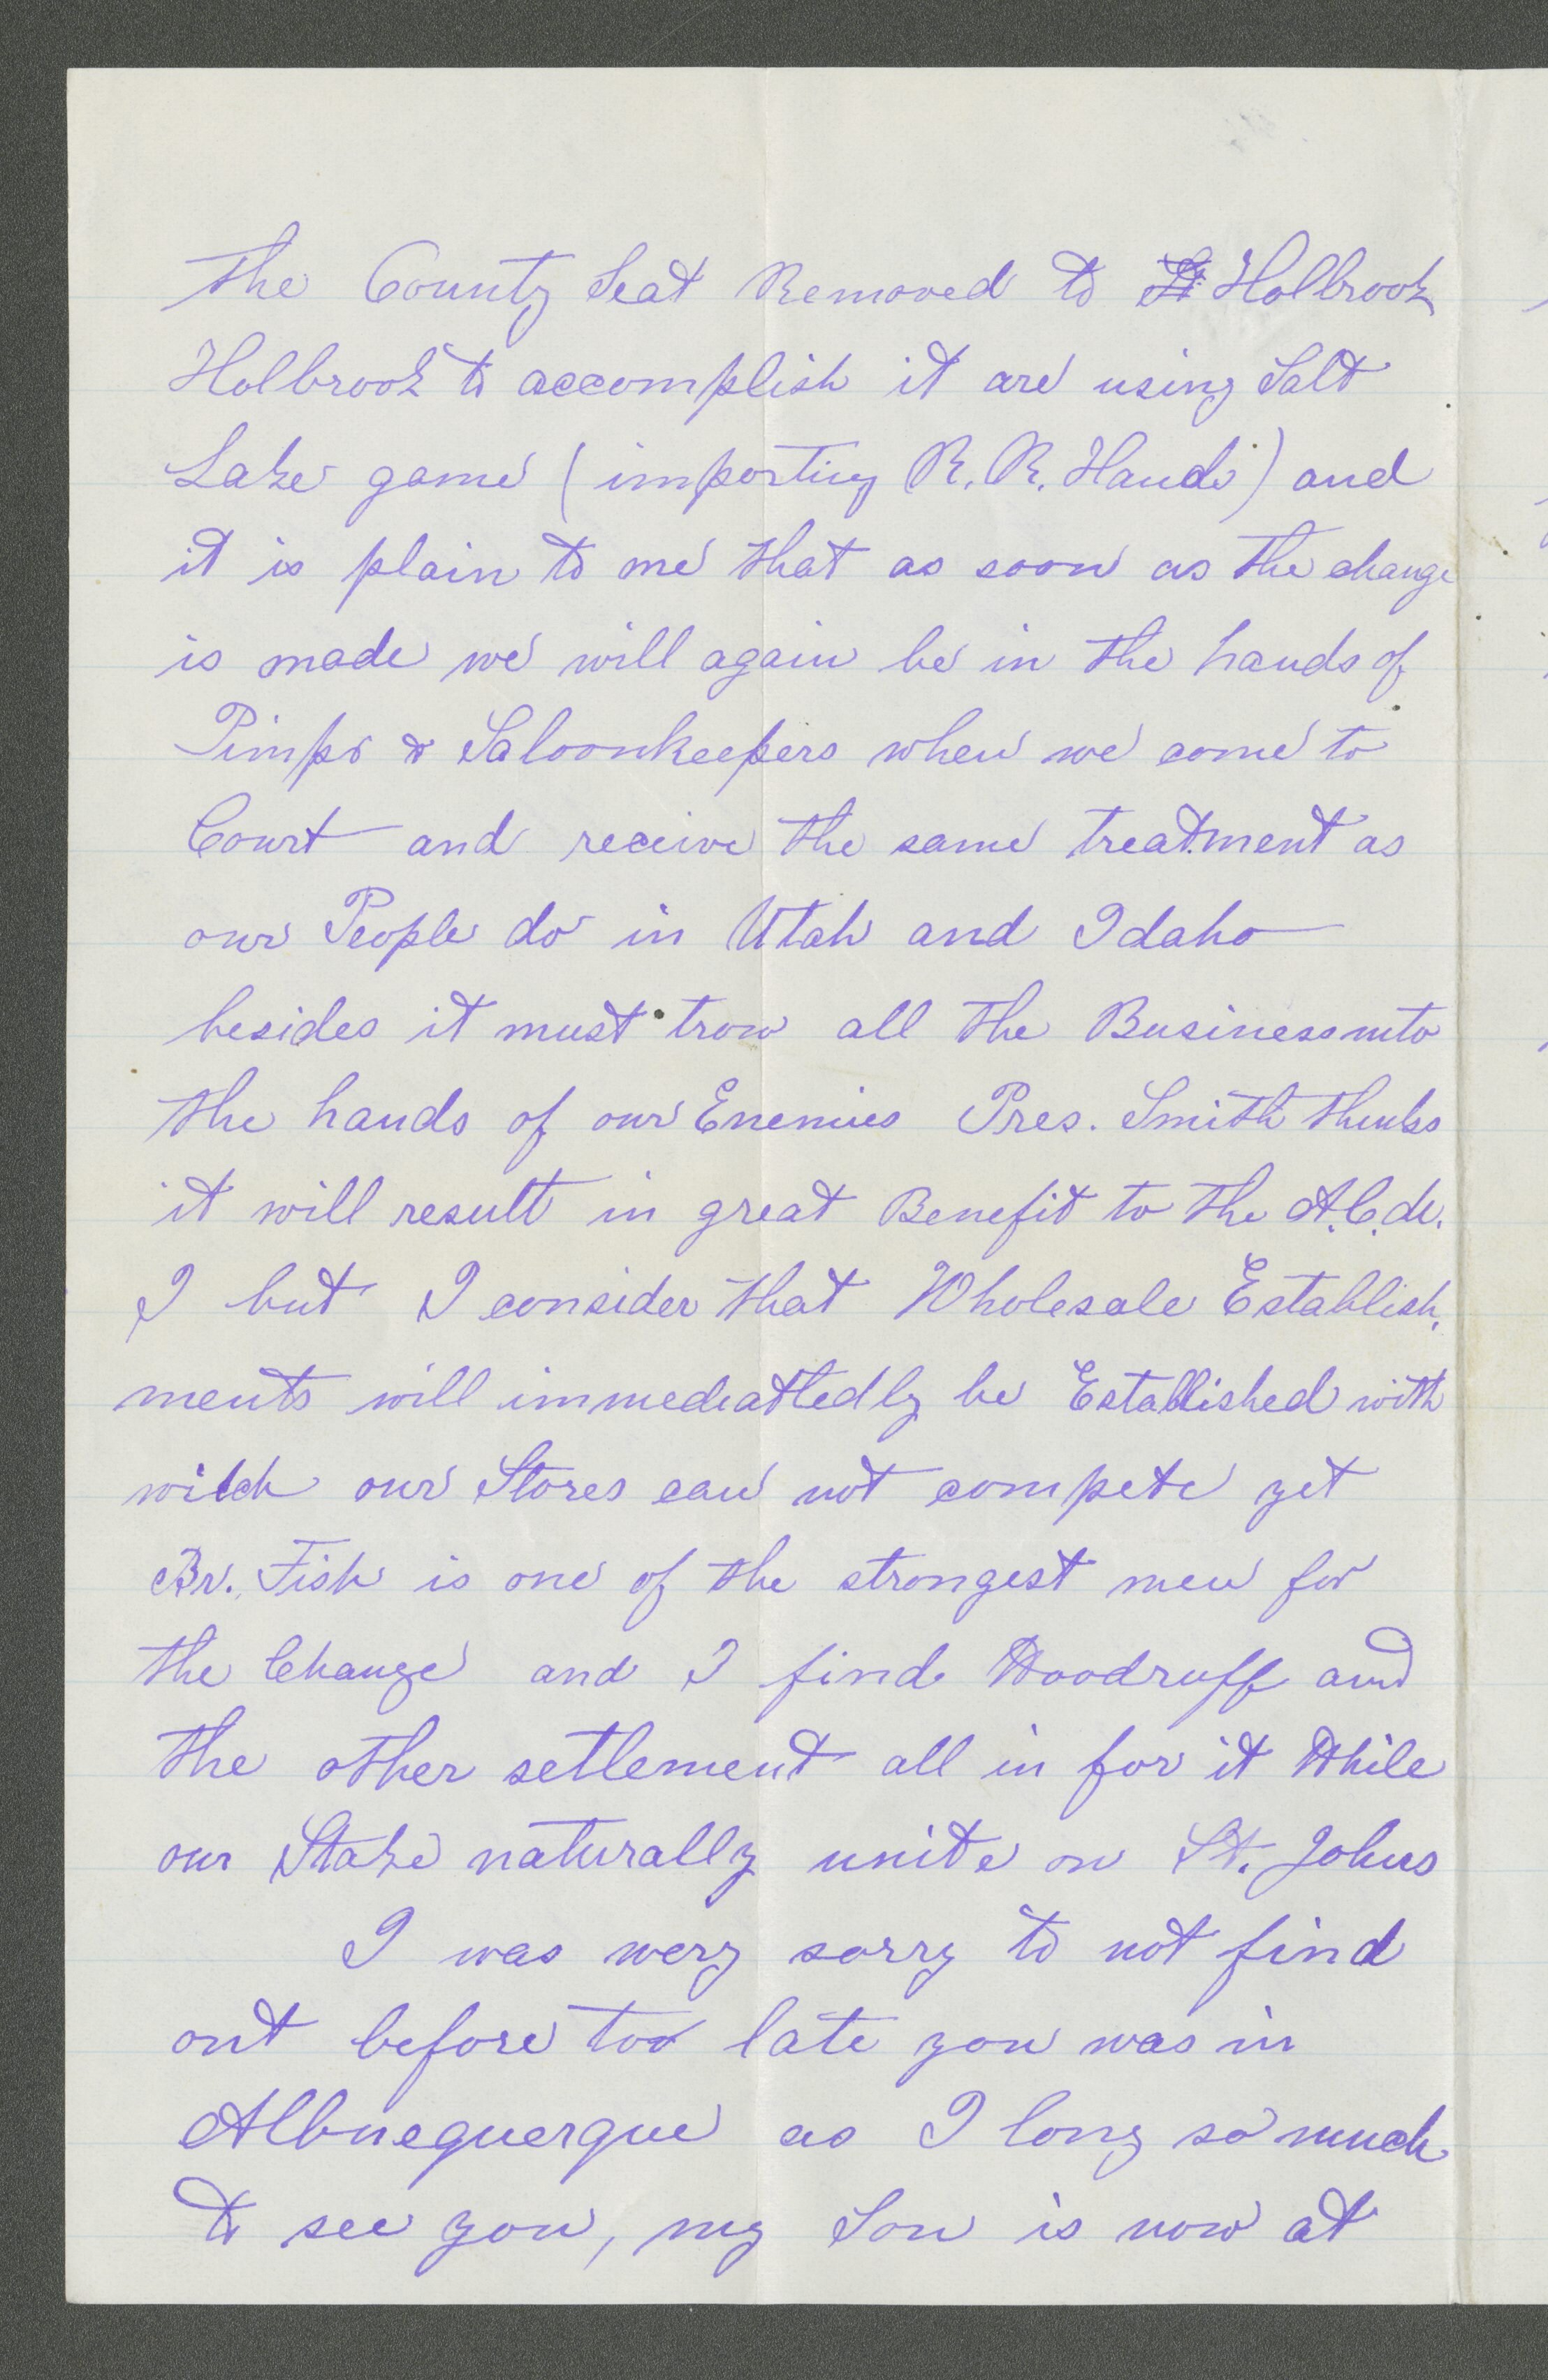 the County Seat Removed to St Holbrook
Holbrook to accomplish it are using Salt
Lake game (importing R. R. Hands) and
it is plain to me that as soon as the change
is made we will again be in the hands of
Pimps & Saloonkeepers when we come to
Court and receive the same treatment as
our People do in Utah and Idaho
besides it must trow all the Business into
the hands of our Enemies Pres. Smith thinks
it will result in great Benefit to the A.C.M.
I but I consider that Wholesale Establish.
ments will immediattedly be Established with
wilch our Stores can not compete yet
Br. Fish is one of the strongest men for
the Change and I find Woodruff and
the other setlement all in for it While
our Stake naturally unite on St. Johns
I was wery sorry to not find
out before too late you was in
Albuequerque as I long so much
to see you, my Son is now at